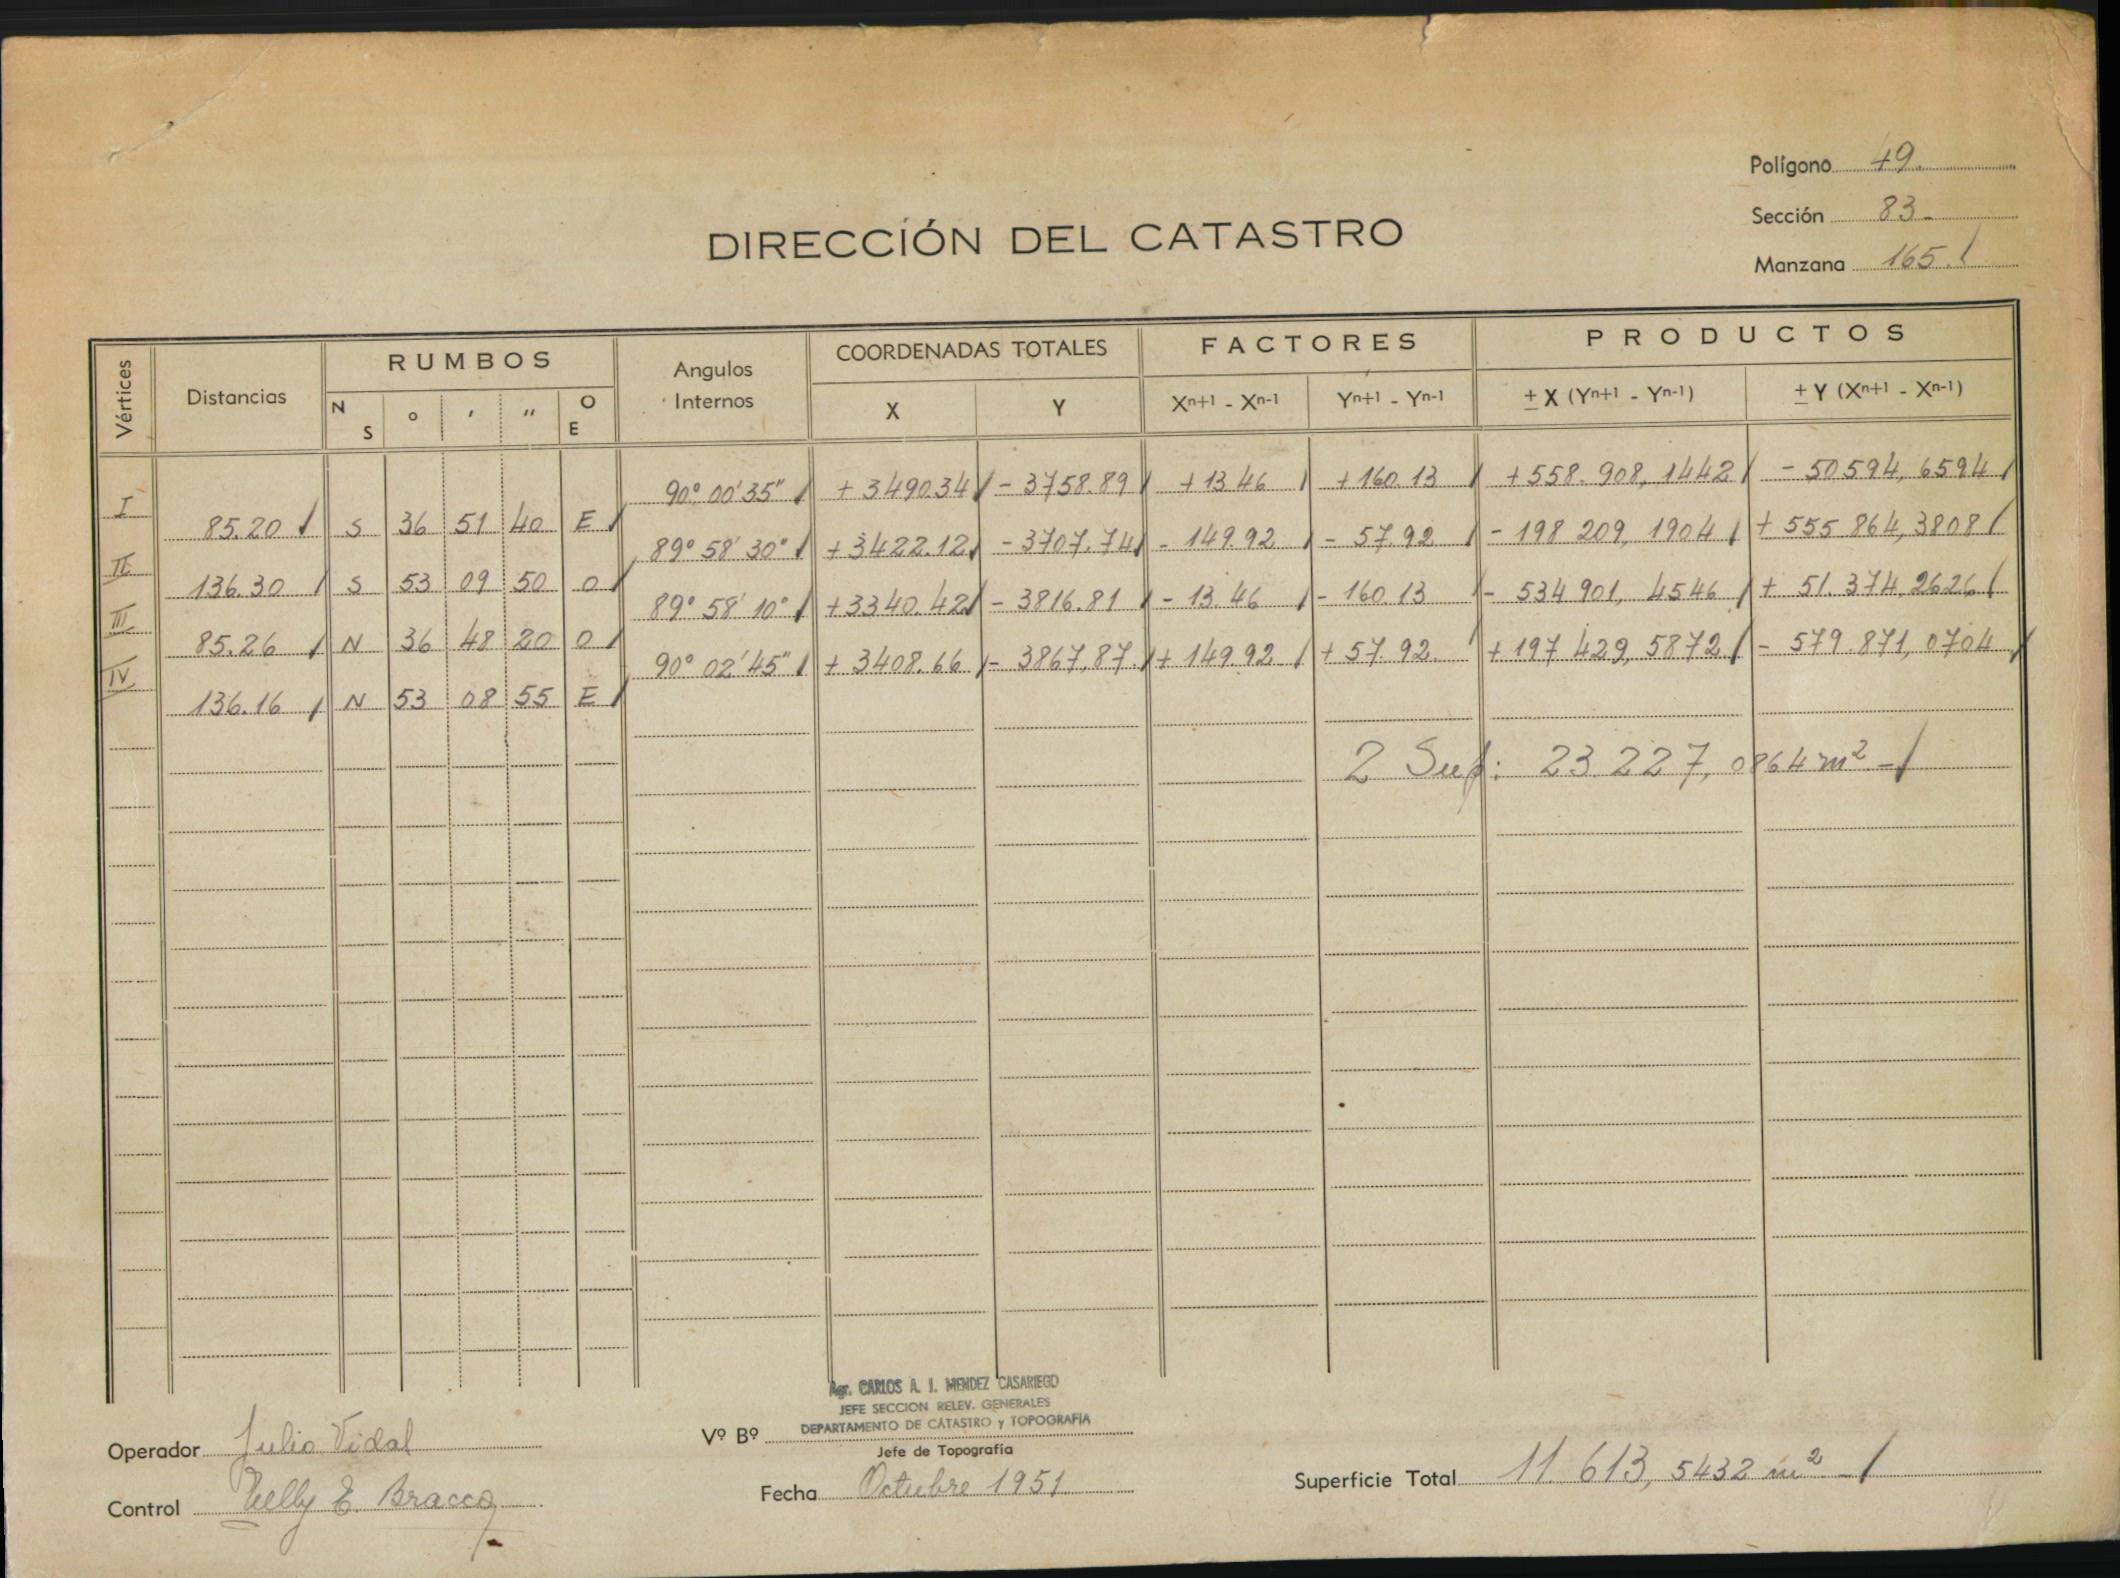 Polígono 49.
Sección 83.
Manzana 165.
DIRECCIÓN DEL CATASTRO
Vértices Distancias RUMBOS Angulos Internos COORDENADAS TOTALES FACTORES PRODUCTOS
N S ° ′ ″ O E X Y Xn+1 - Xn-1 Yn+1 - Yn-1 ± X (Yn+1 - Yn-1) ± Y (Xn+1 - Xn-1)
I 90° 00' 35" + 3490.34 - 3758.89 + 13.46 + 160.13 + 558.908,1442 - 50594,6594
85.20 S 36 51 40 E
II 89° 58' 30" + 3422.12 - 3707.74 - 149.92 - 57.92 - 198 209,1904 + 555 864,3808
136.30 S 53 09 50 O
III 89° 58' 10" + 3340.42 - 3816.81 - 13.46 - 160.13 - 534 901,4546 + 51.374,2626
85.26 N 36 48 20 O
IV 90° 02' 45" + 3408.66 - 3867,87. + 149.92 + 57.92. + 197 429,5872 - 579.871,0704
136.16 N 53 08 55 E
2 Sup: 23.227,0864 m² -
Agr. CARLOS A. I. MENDEZ CASARIEGO
JEFE SECCION RELEV. GENERALES
DEPARTAMENTO DE CATASTRO y TOPOGRAFIA
Operador Julio Vidal
Vº Bº
Jefe de Topografía
Control Nelly E. Bracco
Fecha Octubre 1951
Superficie Total 11 613,5432 m² -